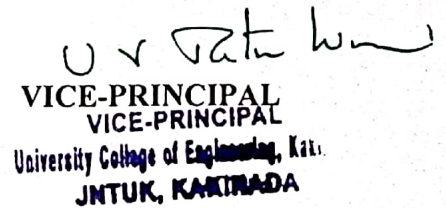 U V
VICE-PRINCIPAL
VICE-PRINCIPAL
University College of Engineering, Kak
JNTUK, KAKINADA